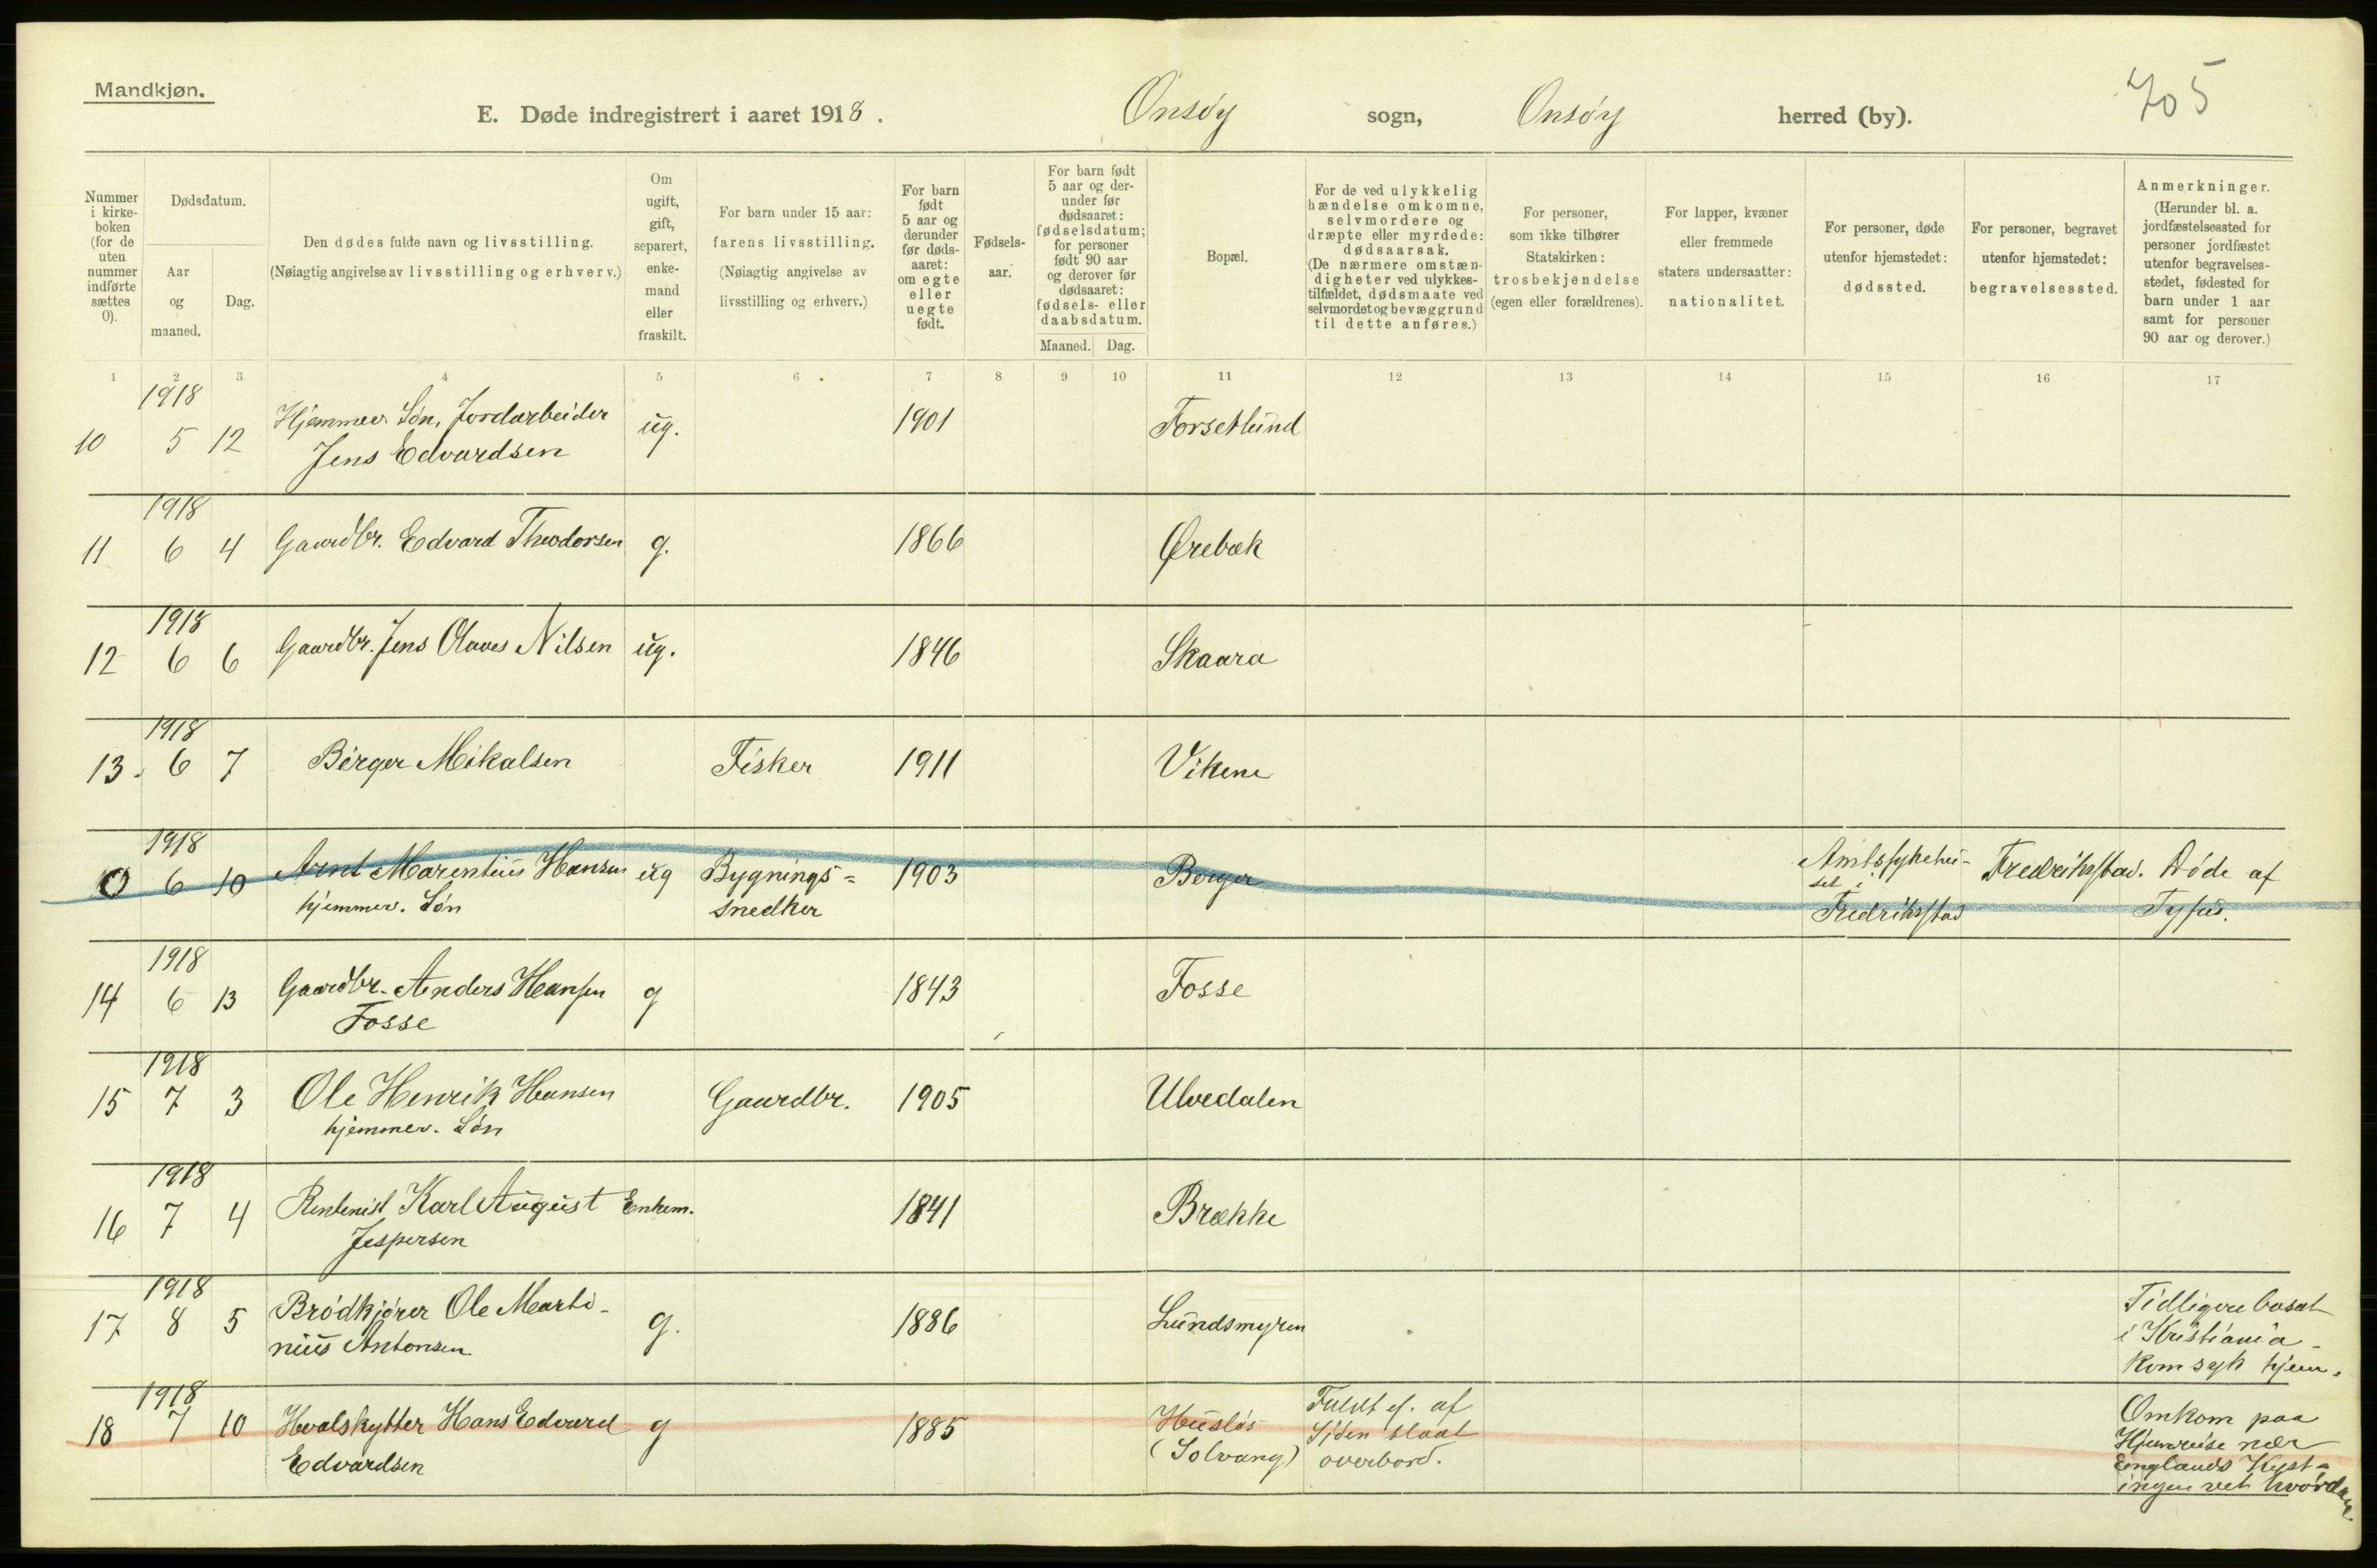 Mandkjøn.
E. Døde indregistrert i aaret 1918. Onsøy sogn, Onsøy herred (by).
705
Nummer i kirke-boken (for de uten nummer indførte sættes 0).
Dødsdatum.
Aar og maaned.
Dag.
Den dødes fulde navn og livsstilling.
(Nøiagtig angivelse av livsstilling og erhverv.)
Om ugift, gift, separert, enke-mand eller fraskilt.
For barn under 15 aar: farens livsstilling.
(Nøiagtig angivelse av livsstilling og erhverv.)
For barn født 5 aar og derunder før døds-aaret: om egte eller uegte født.
Fødsels-aar.
For barn født 5 aar og der-under før dødsaaret: fødselsdatum; for personer født 90 aar og derover før dødsaaret: fødsels- eller daabsdatum.
Maaned. Dag.
Bopæl.
For de ved ulykkelig hændelse omkomne, selvmordere og dræpte eller myrdede: dødsaarsak.
(De nærmere omstæn-digheter ved ulykkes-tilfældet, dødsmaate ved selvmordet og bevæggrund til dette anføres.)
For personer, som ikke tilhører Statskirken: trosbekjendelse (egen eller forældrenes).
For lapper, kvæner eller fremmede staters undersaatter: nationalitet.
For personer, døde utenfor hjemstedet: dødssted.
For personer, begravet utenfor hjemstedet: begravelsessted.
Anmerkninger.
(Herunder bl. a. jordfæstelsessted for personer jordfæstet utenfor begravelses-stedet, fødested for barn under 1 aar samt for personer 90 aar og derover.)
1 2 3 4 5 6 7 8 9 10 11 12 13 14 15 16 17
1918
Hjemmev. Søn, Jordarbeider
10 5 12 Jens Edvardsen ug. 1901 Forsetlund
1918
11 6 4 Gaardbr. Edvard Theodorsen g. 1866 Ørebæk
1918
12 6 6 Gaardbr. Jens Olaves Nilsen ug. 1846 Skaara
1918
13. 6 7 Birger Mikalsen Fisker 1911 Vikene
1918
0 6 10 Arnt Marentius Hansen ug Bygnings= 1903 Borger Amtssykehu- Fredrikstad. Døde af
hjemmev. Søn snedker set i Fredriksstad Tyfus.
1918
14 6 13 Gaardbr. Anders Hansen g 1843 Fosse
Fosse
1918
15 7 3 Ole Henrik Hansen Gaardbr. 1905 Ulvedalen
hjemmev. Søn
1918
16 7 4 Rentenist Karl August Enkem. 1841 Brække
Jespersen
1918
17 8 5 Brødkjører Ole Marti- g. 1886 Lundsmyren Tidligere bosat
nius Antonsen i Kristiania
kom syk hjem.
1918
18 7 10 Hvalskytter Hans Edvard g 1885 Husløs Faldt el. af Omkom paa
Edvardsen (Solvang) Sjøen slaat Hjemreise nær
overbord. Englands Kyst-
ingen vet hvordan